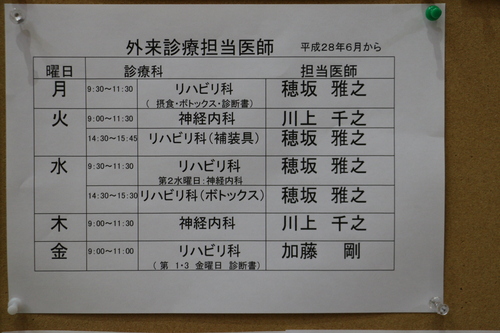 外来診療担当医師 平成28年6月から
曜日 診療科 担当医師
月 9:30～11:30 リハビリ科 穂坂 雅之
( 摂食・ボトックス・診断書)
火 9:00～11:30 神経内科 川上 千之
14:30～15:45 リハビリ科(補装具) 穂坂 雅之
水 9:30～11:30 リハビリ科 穂坂 雅之
第2水曜日:神経内科
14:30～15:30 リハビリ科(ボトックス) 穂坂 雅之
木 9:00～11:30 神経内科 川上 千之
金 9:00～11:00 リハビリ科 加藤 剛
( 第 1・3 金曜日 診断書)